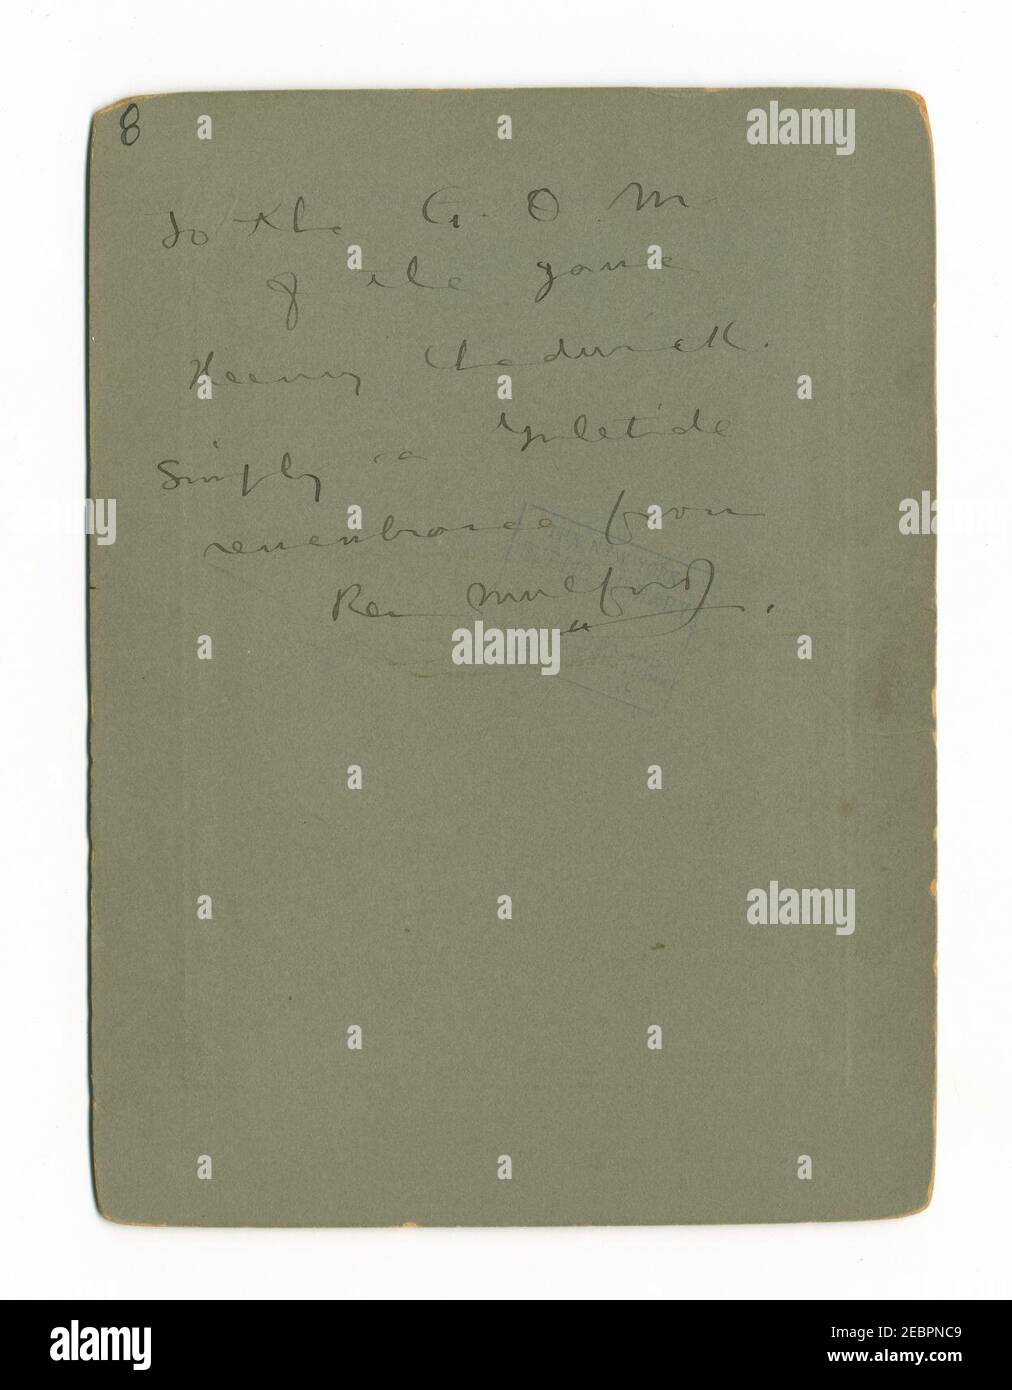 8
To the G. O. M.
of the game
Henry Chadwick.
Simply a Yuletide
remembrance from
Ren Mulford Jr.
THE NEW YORK
PUBLIC
alamy
Image ID: 2EBPNC9
www.alamy.com